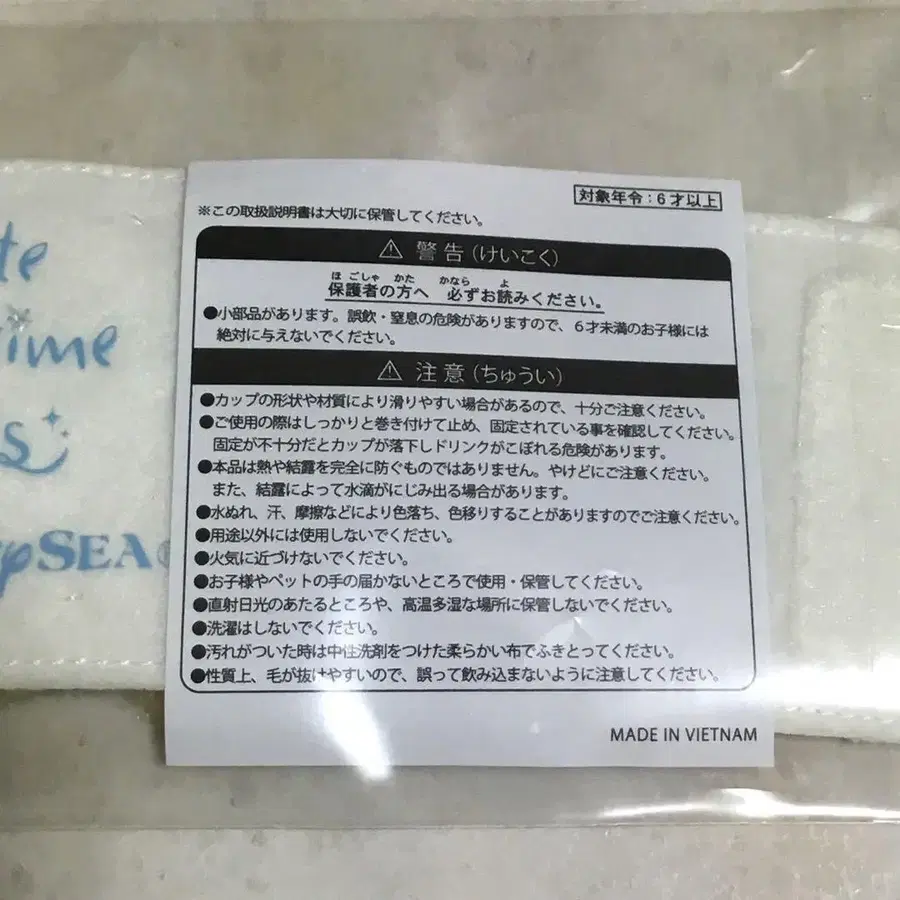 対象年令：6才以上
※この取扱説明書は大切に保管してください。
⚠ 警告（けいこく）
ほごしゃ かた かなら よ
保護者の方へ 必ずお読みください。
●小部品があります。誤飲・窒息の危険がありますので、6才未満のお子様には
絶対に与えないでください。
⚠ 注意（ちゅうい）
●カップの形状や材質により滑りやすい場合があるので、十分ご注意ください。
●ご使用の際はしっかりと巻き付けて止め、固定されている事を確認してください。
固定が不十分だとカップが落下しドリンクがこぼれる危険があります。
●本品は熱や結露を完全に防ぐものではありません。やけどにご注意ください。
また、結露によって水滴がにじみ出る場合があります。
●水ぬれ、汗、摩擦などにより色落ち、色移りすることがありますのでご注意ください。
●用途以外には使用しないでください。
●火気に近づけないでください。
●お子様やペットの手の届かないところで使用・保管してください。
●直射日光のあたるところや、高温多湿な場所に保管しないでください。
●洗濯はしないでください。
●汚れがついた時は中性洗剤をつけた柔らかい布でふきとってください。
●性質上、毛が抜けやすいので、誤って飲み込まないように注意してください。
MADE IN VIETNAM
SEA